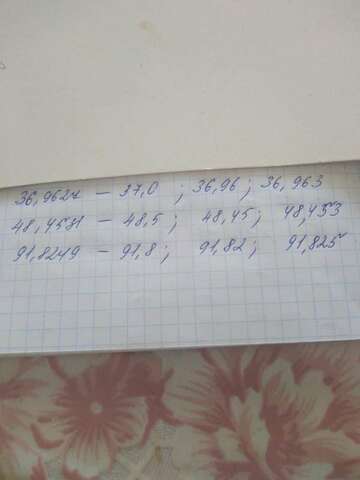 36,9627 — 37,0 ; 36,96 ; 36,963
48,4531 — 48,5 ; 48,45 ; 48,453
91,8249 — 91,8 ; 91,82 ; 91,825